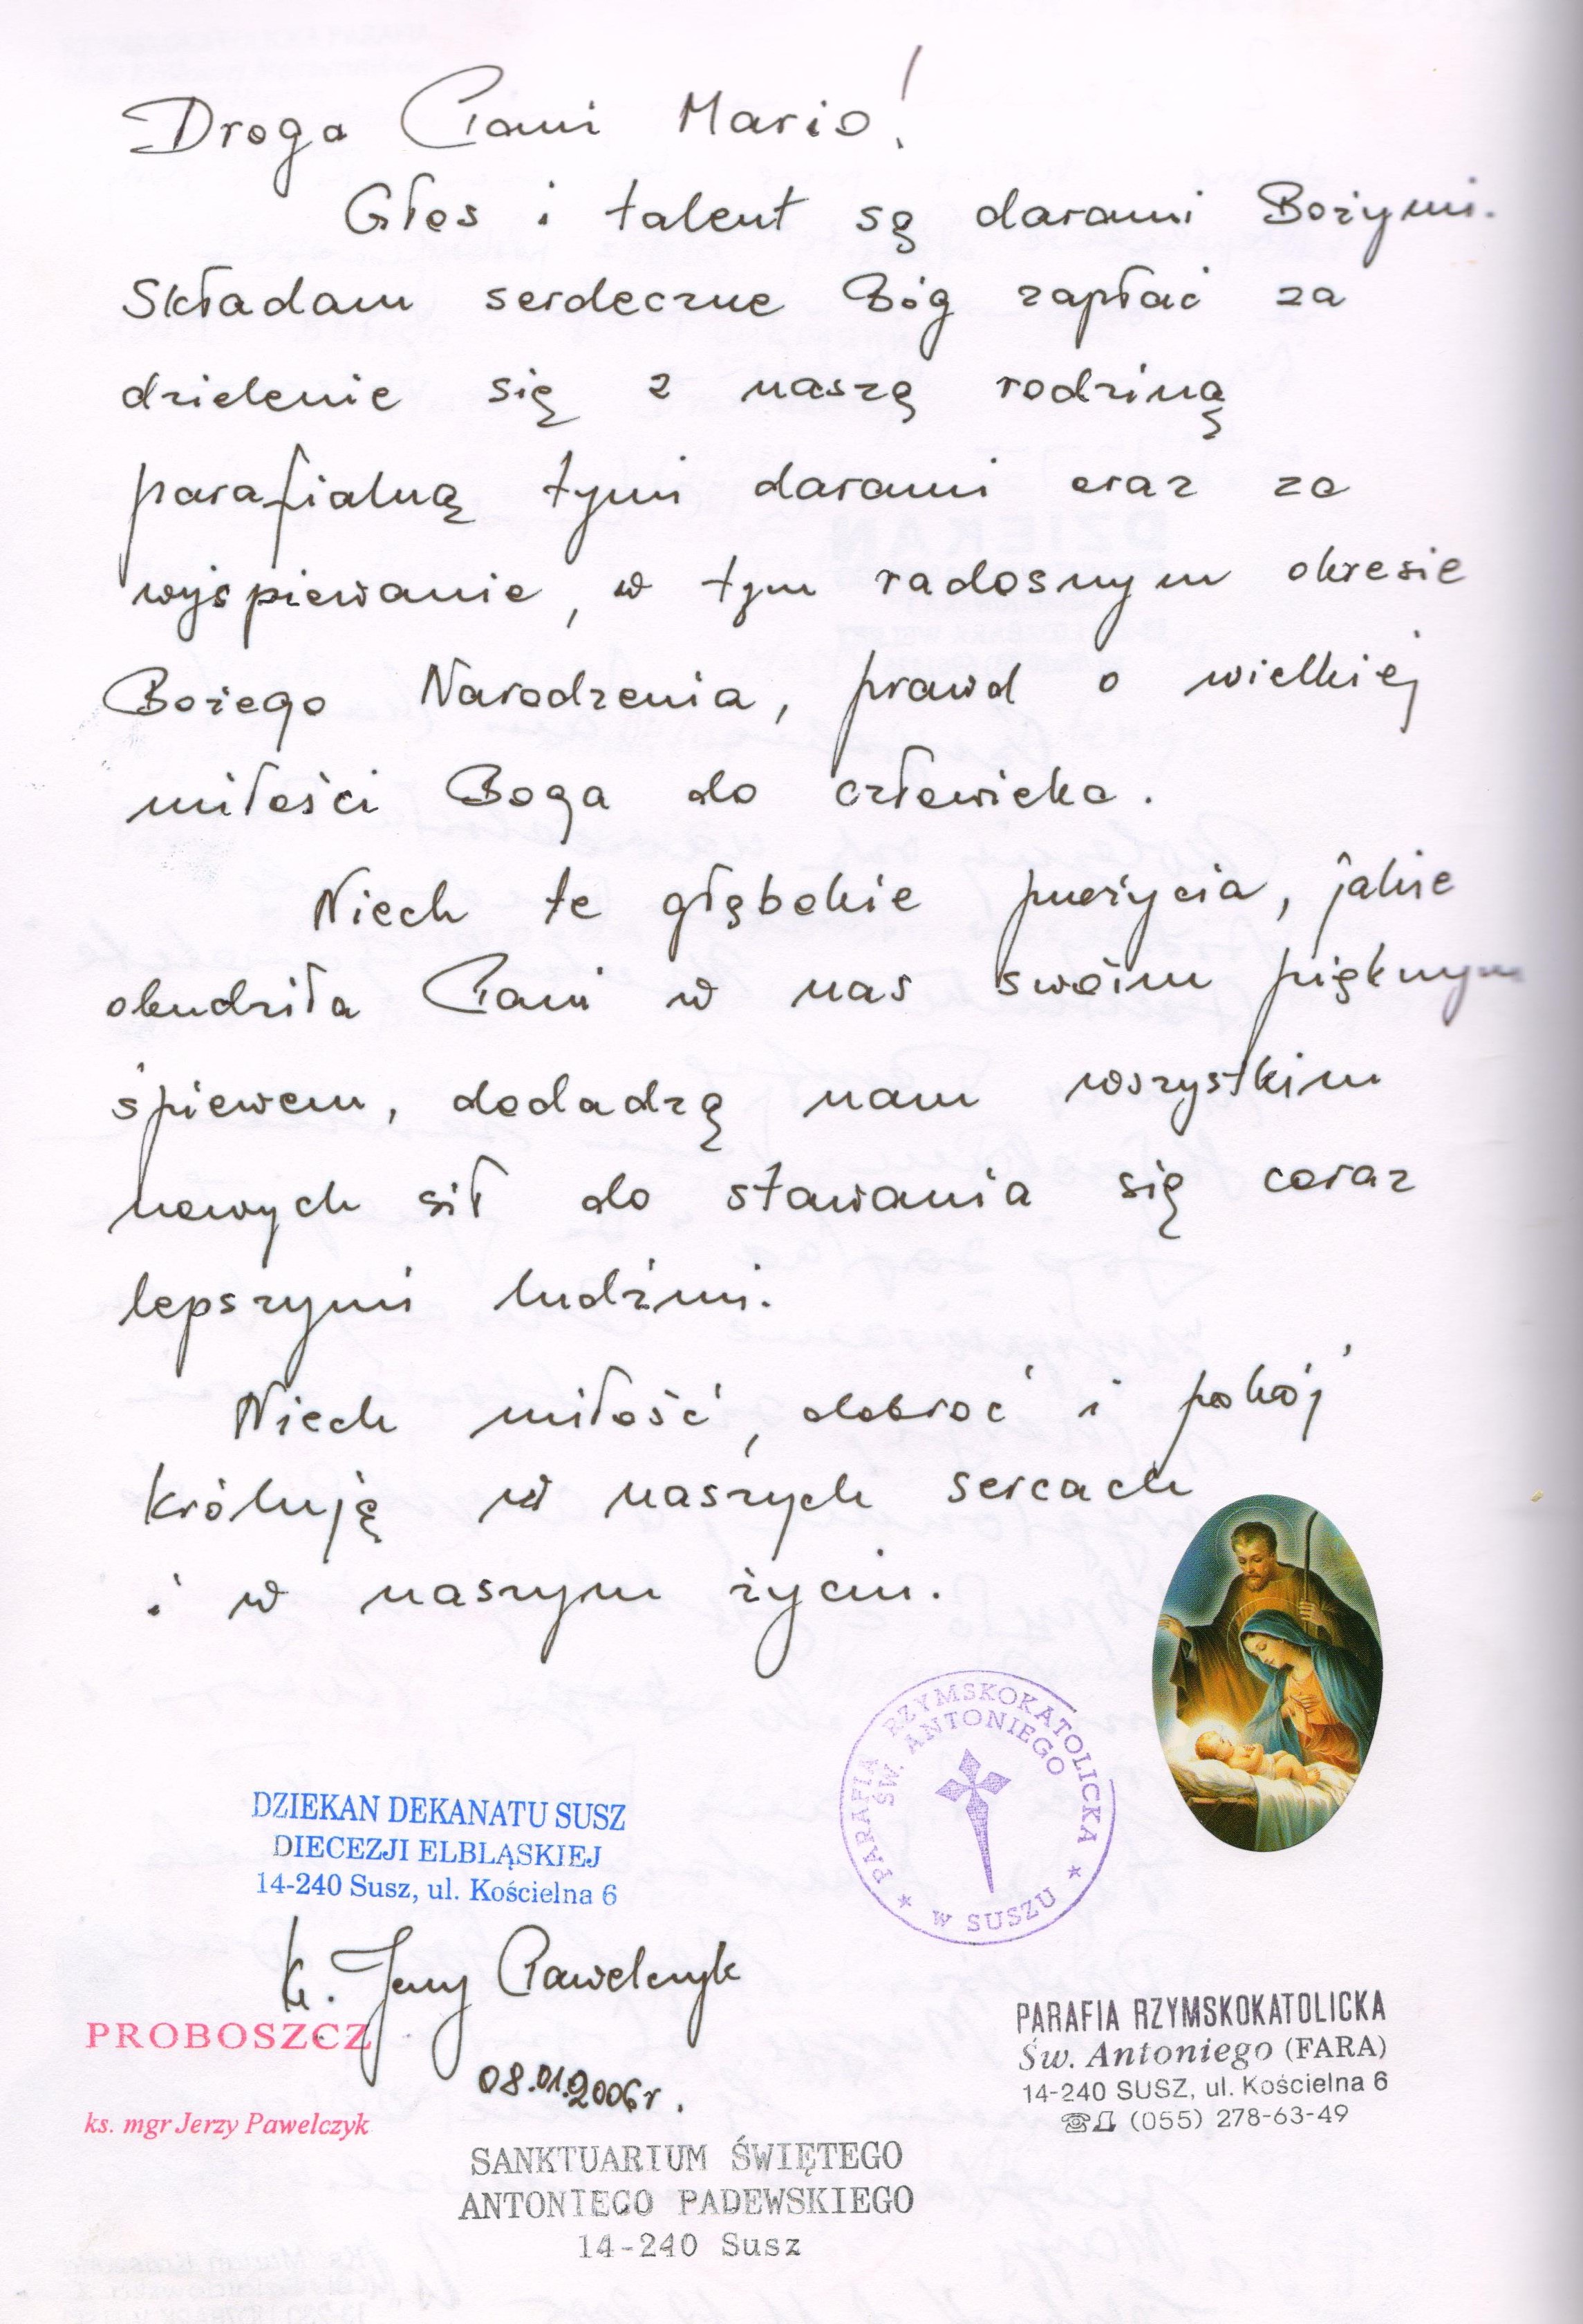 Droga Pani Mario!
Głos i talent są darami Bożymi.
Składam serdeczne Bóg zapłać za
dzielenie się z naszą rodziną
parafialną tymi darami oraz za
wyśpiewanie, w tym radosnym okresie
Bożego Narodzenia, prawd o wielkiej
miłości Boga do człowieka.
Niech te głębokie przeżycia, jakie
obudziła Pani w nas swoim pięknym
śpiewem, dodadzą nam wszystkim
nowych sił do stawania się coraz
lepszymi ludźmi.
Niech miłość, dobroć i pokój
królują w naszych sercach
i w naszym życiu.
PARAFIA RZYMSKOKATOLICKA
ŚW. ANTONIEGO
★ W SUSZU ★
DZIEKAN DEKANATU SUSZ
DIECEZJI ELBLĄSKIEJ
14-240 Susz, ul. Kościelna 6
ks. Jerzy Pawelczyk
PROBOSZCZ
08.01.2006r.
ks. mgr Jerzy Pawelczyk
PARAFIA RZYMSKOKATOLICKA
Św. Antoniego (FARA)
14-240 SUSZ, ul. Kościelna 6
(055) 278-63-49
SANKTUARIUM ŚWIĘTEGO
ANTONIEGO PADEWSKIEGO
14-240 Susz